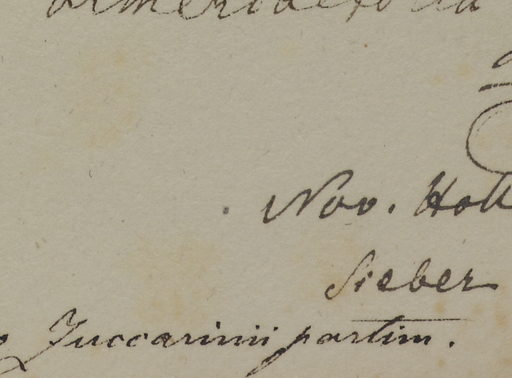 Nov. Holl
Sieber
Zuccarinii partim.